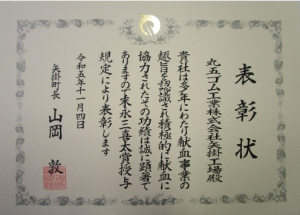 表彰状
丸五ゴム工業株式会社矢掛工場殿
貴社は多年にわたり献血事業の
趣旨を認識され積極的に献血に
協力されたその功績は誠に顕著で
ありますので末永一喜太賞授与
規定により表彰します
令和五年十一月四日
矢掛町長 山岡敦